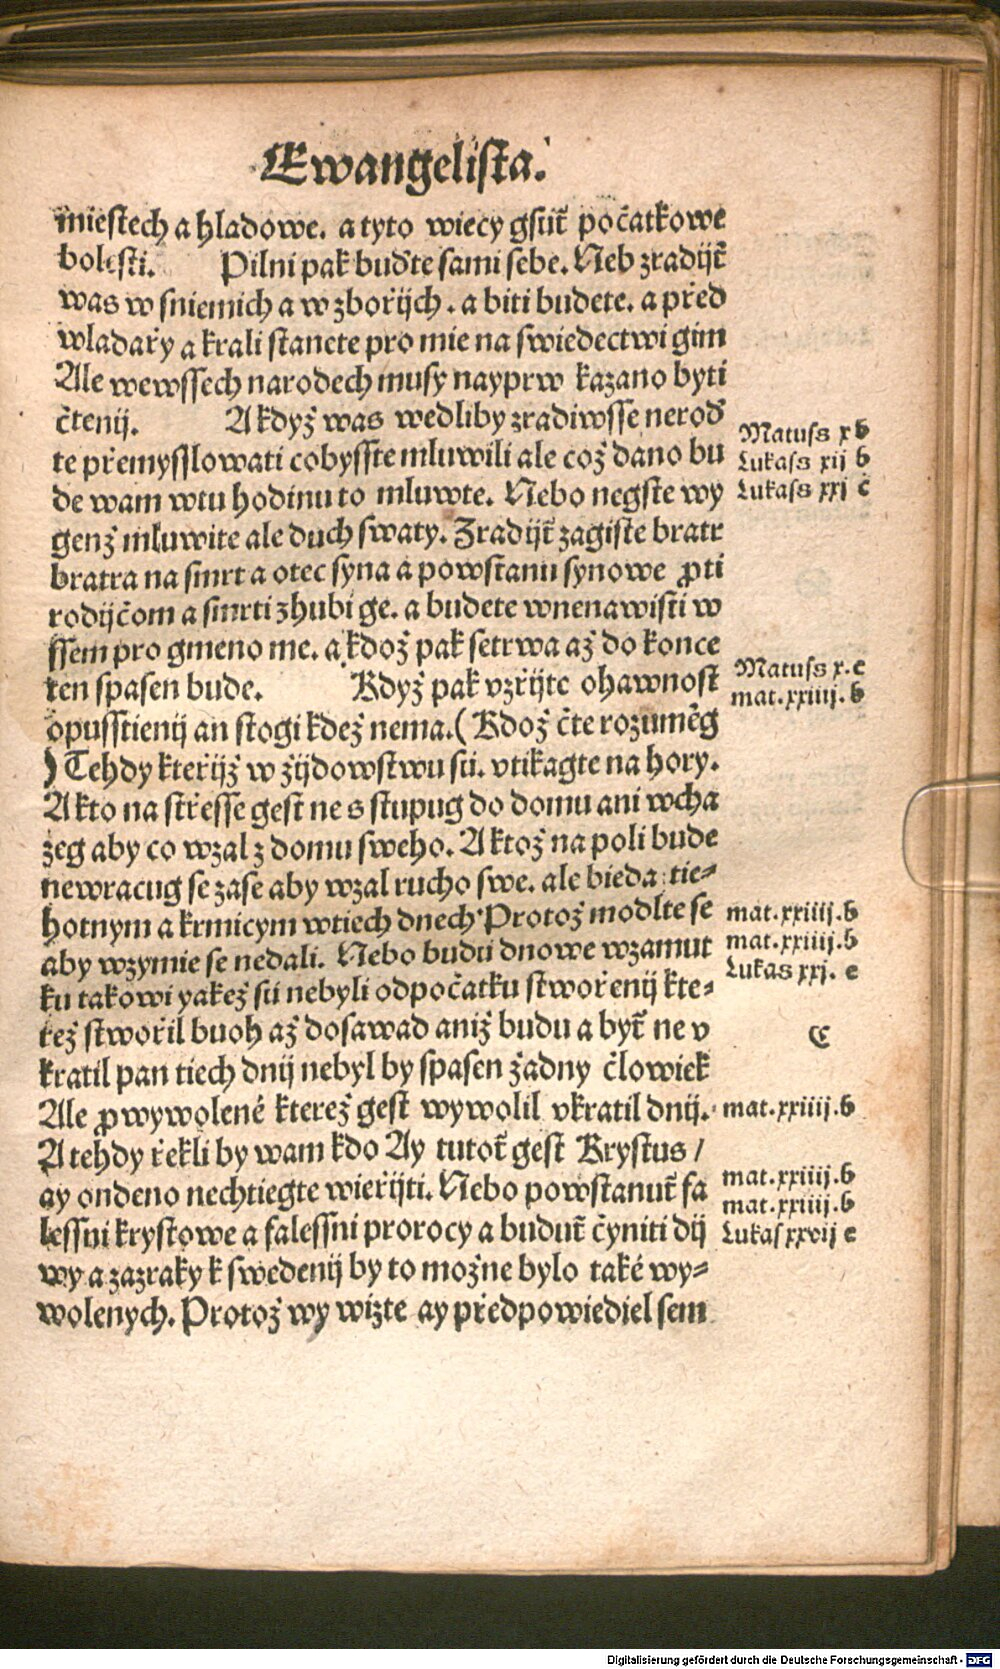 Ewangelista.
miestech a hladowe. a tyto wiecy gsut̃ počatkowe
bolesti. Pilni pak buďte sami sebe. Neb zradijt̃
was w sniemich a w zbořijch. a biti budete. a před
wladařy a krali stanete pro mie na swiedectwi gim
Ale wewssech narodech musy nayprw kazano byti
čtenij. A když was wedliby zradiwsse neroď
te přemysslowati cobysste mluwili ale což dano bu
de wam wtu hodinu to mluwte. Nebo negste wy
genž mluwite ale duch swaty. Zradijt̃ zagiste bratr
bratra na smrt a otec syna a powstanu synowe ꝓti
rodijčom a smrti zhubi ge. a budete wnenawisti w
ssem pro gmeno me. a kdož pak setrwa až do konce
ten spasen bude. Když pak vzřijte ohawnost
opusstienij an stogi kdež nema. (Kdož čte rozuměg
) Tehdy kteřijž w žijdowstwu sú. vtikagte na hory.
A kto na střesse gest ne s stupug do domu ani wcha
zeg aby co wzal z domu sweho. A ktož na poli bude
newracug se zase aby wzal rucho swe. ale bieda tie⸗
hotnym a krmicym wtiech dnech Protož modlte se
aby wzymie se nedali. Nebo budú dnowe wzamut
ku takowi yakež sú nebyli odpočatku stwořenij kte⸗
rež stwořil buoh až dosawad aniž budu a byt̃ ne v
kratil pan tiech dnij nebyl by spasen žadny člowiek
Ale ꝓ wywolené kterež gest wywolil vkratil dnij.
A tehdy řekli by wam kdo Ay tutot̃ gest Krystus /
ay ondeno nechtiegte wieřijti. Nebo powstanut̃ fa
lessni krystowe a falessni prorocy a budut̃ čyniti dij
wy a zazraky k swedenij by to možne bylo také wy⸗
wolenych. Protož wy wizte ay předpowiediel sem
Matuss x b
Lukass xij b
Lukass xxj č
Matuss x. c
mat. xxiiij. b
mat. xxiiij. b
mat. xxiiij. b
Lukas xxj. e
C
mat. xxiiij. b
mat. xxiiij. b
mat. xxiiij. b
Lukas xxvij e
Digitalisierung gefördert durch die Deutsche Forschungsgemeinschaft - DFG